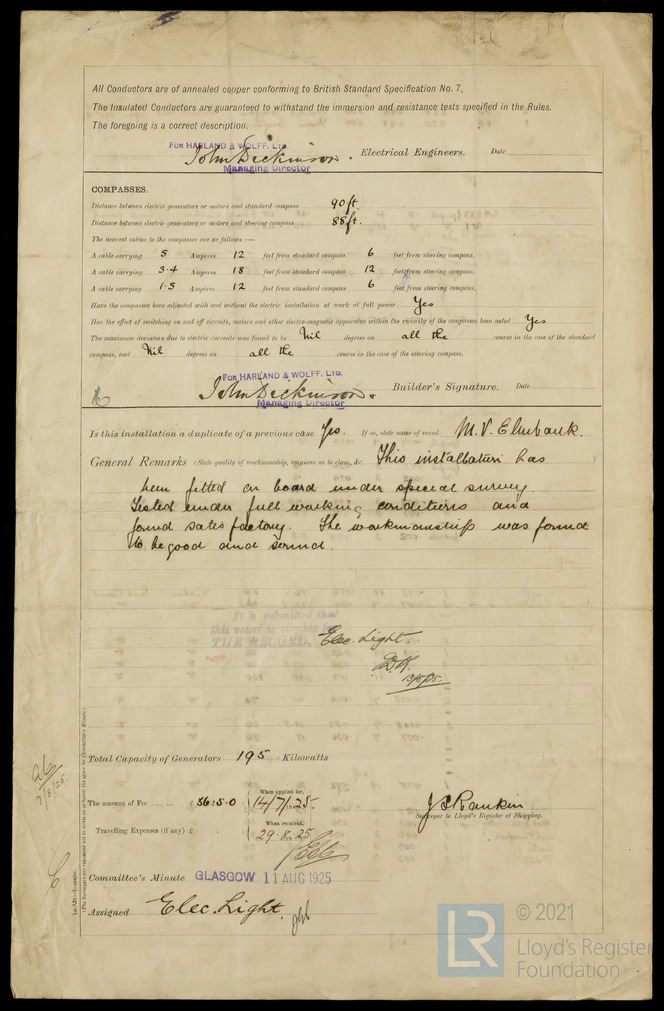 All Conductors are of annealed copper conforming to British Standard Specification No. 7.
The Insulated Conductors are guaranteed to withstand the immersion and resistance tests specified in the Rules.
The foregoing is a correct description.
FOR HARLAND & WOLFF. LTD.
John Dickinson. Electrical Engineers. Date
Managing Director
COMPASSES.
Distance between electric generators or motors and standard compass 90 ft.
Distance between electric generators or motors and steering compass 88 ft.
The nearest cables to the compasses are as follows :—
A cable carrying 5 Ampères 12 feet from standard compass 6 feet from steering compass.
A cable carrying 3·4 Ampères 18 feet from standard compass 12 feet from steering compass.
A cable carrying 1·5 Ampères 12 feet from standard compass 6 feet from steering compass.
Have the compasses been adjusted with and without the electric installation at work at full power Yes
Has the effect of switching on and off circuits, motors and other electro-magnetic apparatus within the vicinity of the compasses been noted Yes
The maximum deviation due to electric currents was found to be Nil degrees on all the course in the case of the standard
compass, and Nil degrees on all the course in the case of the steering compass.
FOR HARLAND & WOLFF. LTD.
John Dickinson. Builder's Signature. Date
Managing Director
Is this installation a duplicate of a previous case Yes. If so, state name of vessel M.V. Elmbank.
General Remarks (State quality of workmanship, opinions as to class, &c. This installation has
been fitted on board under special survey.
Tested under full working conditions and
found satisfactory. The workmanship was found
to be good and sound.
It is submitted that
this vessel is eligible for
THE RECORD. Elec. Light.
Total Capacity of Generators 195 Kilowatts
The amount of Fee ... ... £ 56 : 5 . 0 : When applied for, 14/7/1925.
Travelling Expenses (if any) £ : : When received, 29.8.1925
J S Rankin
Surveyor to Lloyd's Register of Shipping.
7/8/25.
Committee's Minute GLASGOW 11 AUG 1925
Assigned Elec. Light.
LR © 2021
Lloyd's Register
Foundation